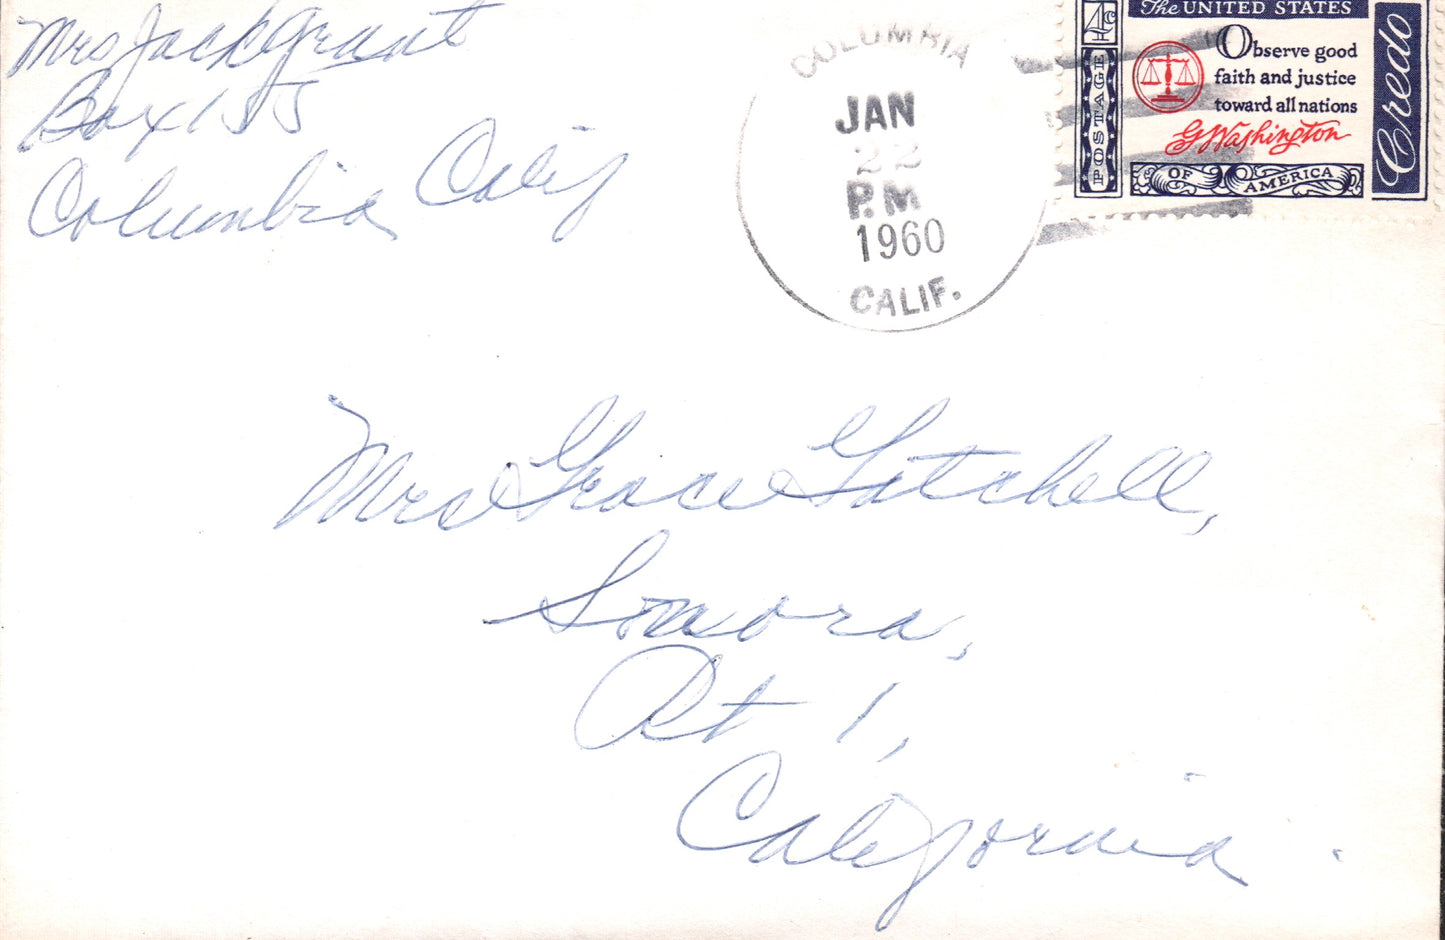 Mrs Jack Grant
Box 155
Columbia Calif
COLUMBIA
JAN
22
P.M
1960
CALIF.
4c
POSTAGE
The UNITED STATES
Observe good
faith and justice
toward all nations
G Washington
OF AMERICA
Credo
Mrs Grace Gatchell,
Sonora,
Rt 1,
California.